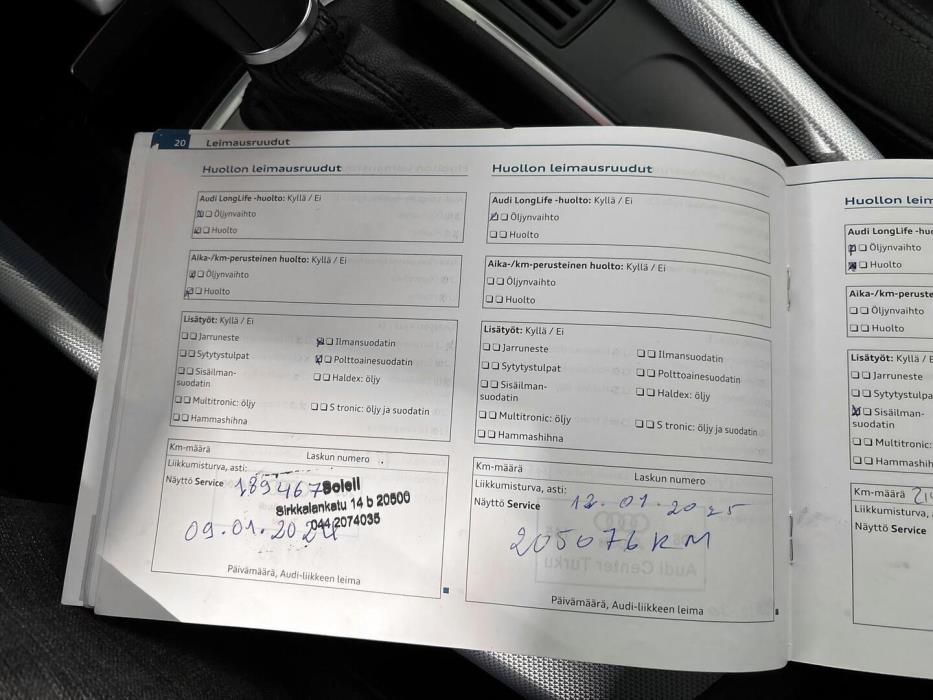 20 Leimausruudut
Huollon leimausruudut
Audi LongLife -huolto: Kyllä / Ei
Öljynvaihto
Huolto
Aika-/km-perusteinen huolto: Kyllä / Ei
Öljynvaihto
Huolto
Lisätyöt: Kyllä / Ei
Jarruneste
Ilmansuodatin
Sytytystulpat
Polttoainesuodatin
Sisäilman-
suodatin
Haldex: öljy
Multitronic: öljy
S tronic: öljy ja suodatin
Hammashihna
Km-määrä
Laskun numero
Liikkumisturva, asti:
Näyttö Service 189467
Soleil
Sirkkalankatu 14 b 20500
044 2074035
09.01.2024
Päivämäärä, Audi-liikkeen leima
Huollon leimausruudut
Audi LongLife -huolto: Kyllä / Ei
Öljynvaihto
Huolto
Aika-/km-perusteinen huolto: Kyllä / Ei
Öljynvaihto
Huolto
Lisätyöt: Kyllä / Ei
Jarruneste
Ilmansuodatin
Sytytystulpat
Polttoainesuodatin
Sisäilman-
suodatin
Haldex: öljy
Multitronic: öljy
S tronic: öljy ja suodatin
Hammashihna
Km-määrä
Laskun numero
Liikkumisturva, asti:
Näyttö Service 13.01.2025
205076 KM
Audi Center Turku
Päivämäärä, Audi-liikkeen leima
Huollon leim
Audi LongLife -huo
Öljynvaihto
Huolto
Aika-/km-peruste
Öljynvaihto
Huolto
Lisätyöt: Kyllä / E
Jarruneste
Sytytystulpa
Sisäilman-
suodatin
Multitronic:
Hammashih
Km-määrä
Liikkumisturva,
Näyttö Service